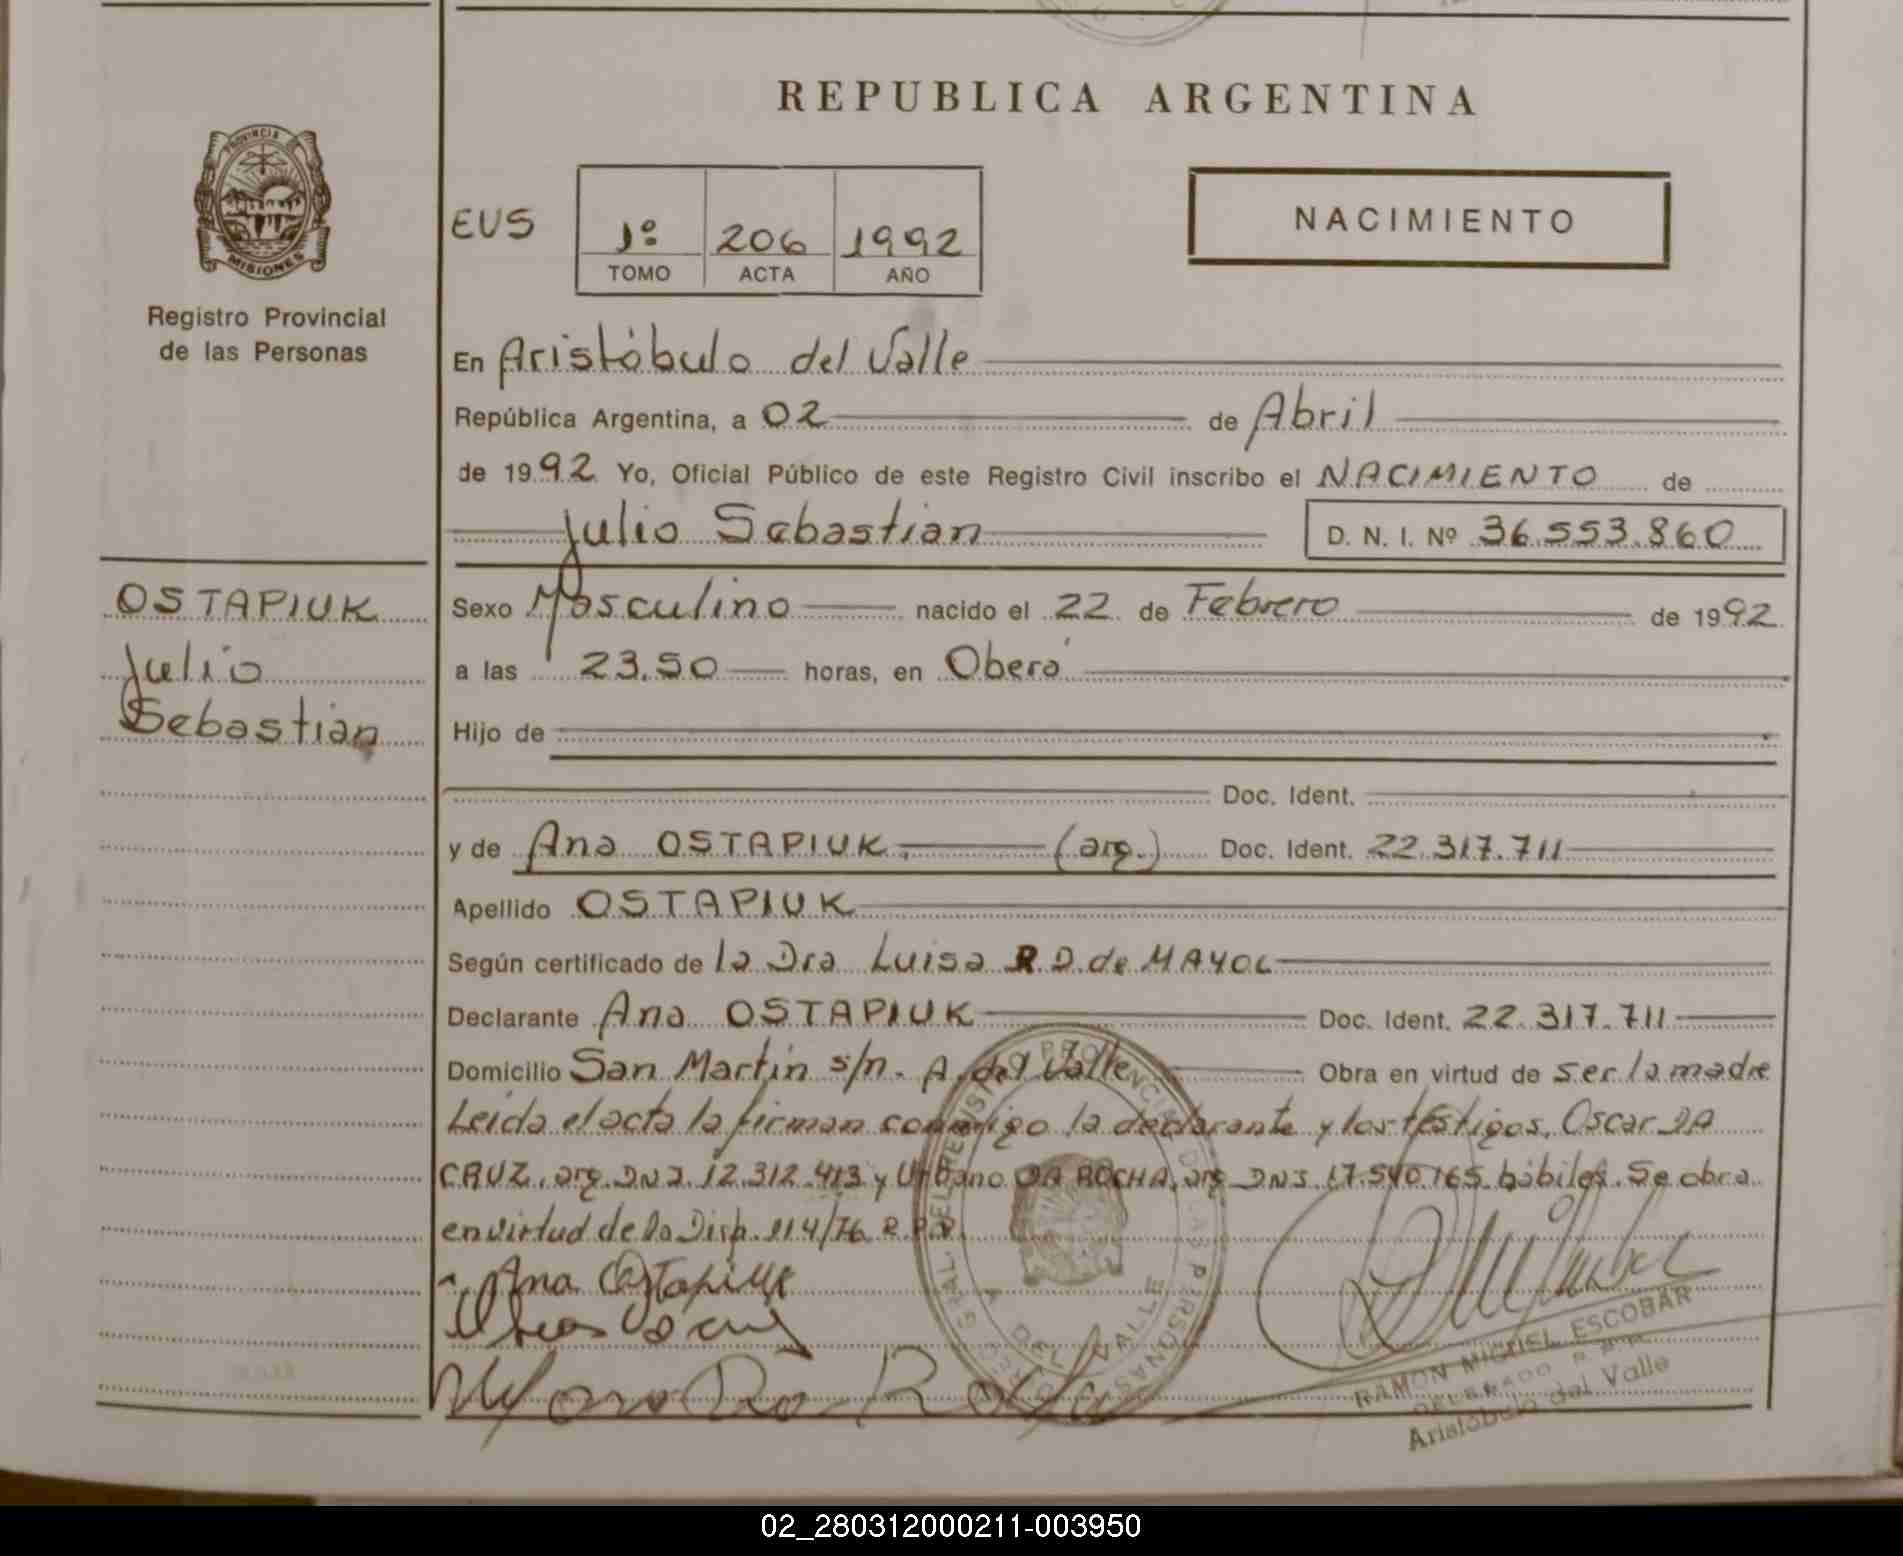 REPUBLICA ARGENTINA
PROVINCIA DE
MISIONES
Registro Provincial
de las Personas
EUS
1º 206 1992
TOMO ACTA AÑO
NACIMIENTO
En Aristóbulo del Valle
República Argentina, a 02 de Abril
de 1992 Yo, Oficial Público de este Registro Civil inscribo el NACIMIENTO de
Julio Sebastian D. N. I. Nº 36.553.860
OSTAPIUK
Julio
Sebastian
Sexo Masculino nacido el 22 de Febrero de 1992
a las 23.50 horas, en Oberá
Hijo de
Doc. Ident.
y de Ana OSTAPIUK. (arg.) Doc. Ident. 22.317.711
Apellido OSTAPIUK
Según certificado de la Dra Luisa R D de MAYOL
Declarante Ana OSTAPIUK Doc. Ident. 22.317.711
Domicilio San Martín s/n. A. del Valle Obra en virtud de ser la madre
Leida el acta la firman conmigo la declarante y los testigos, Oscar DA
CRUZ, arg. DNI. 12.312.413 y Urbano DA ROCHA, arg DNI 17.540.165 hábiles. Se obra
en virtud de la Disp. 114/76 R.P.P.
Ana Ostapiuk
RAMON MIGUEL ESCOBAR
DELEGADO R.P.P.
Aristóbulo del Valle
02_280312000211-003950